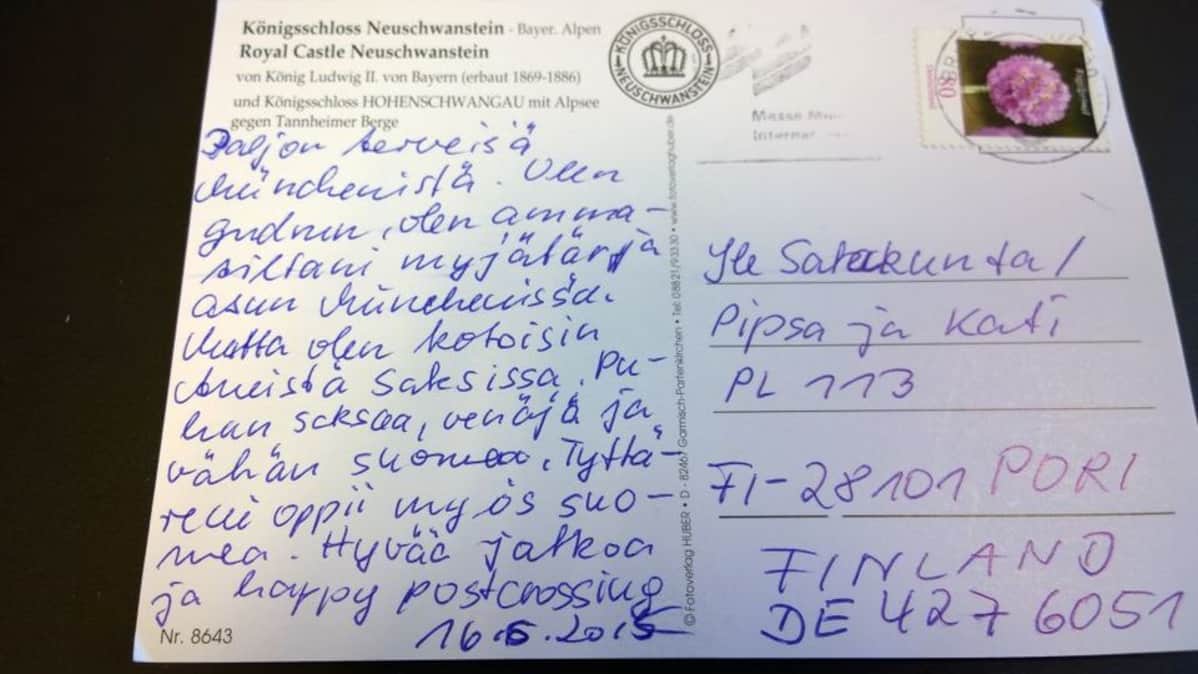 Königsschloss Neuschwanstein - Bayer. Alpen
Royal Castle Neuschwanstein
von König Ludwig II. von Bayern (erbaut 1869-1886)
und Königsschloss HOHENSCHWANGAU mit Alpsee
gegen Tannheimer Berge
KÖNIGSSCHLOSS
NEUSCHWANSTEIN
80
Messe
Paljon terveisä
Münchenistä. Olen
Gudrun, olen amma-
siltani myjätär ja
asun Münchenissä.
Mutta olen kotoisin
Saksissa. Pu-
hun saksaa, venäjä ja
vähän suomea. Tyttä-
reni oppii myös suo-
mea. Hyvää jatkoa
ja happy postcrossing
16.6.2015
Nr. 8643
© Fotoverlag HUBER • D - 82467 Garmisch-Partenkirchen • Tel: 08821/93330 • www.fotoverlaghuber.de
Yle Satakunta/
Pipsa ja Kati
PL 113
FI-28101 PORI
FINLAND
DE 4276051